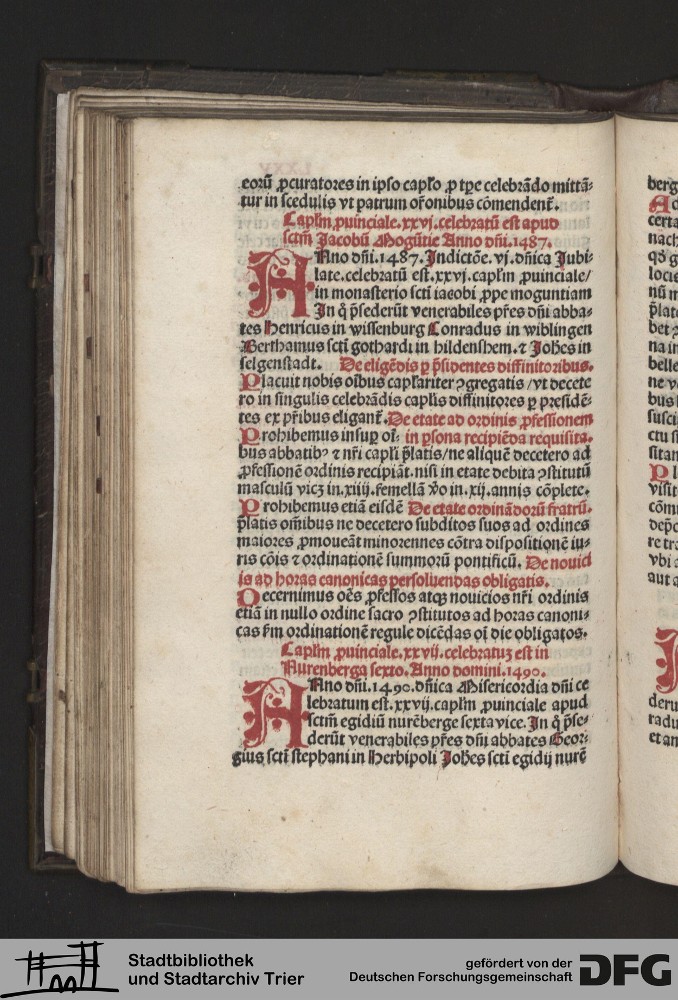 eorū ꝓcuratores in ipso capľo ꝓ tꝑe celebrādo mittā⸗
tur in scedulis vt patrum or̄onibus cōmendent̄.
Capľm ꝓuinciale.xxvj.celebratū est apud
sctm̄ Jacobū Mogūtie Anno dn̄i.1487.
ANno dn̄i.1487.Indictōe.vj.dn̄ica Jubi⸗
late.celebratū est.xxvj.capľm ꝓuinciale/
in monasterio scti iacobi ꝓpe moguntiam
In q̊ p̄sederūt venerabiles pr̄es dn̄i abba⸗
tes Henricus in wissenburg Conradus in wiblingen
Berthamus scti gothardi in hildenshem.⁊ Joh̄es in
selgenstadt. De eligēdis ꝑ p̄sidentes diffinitoribus.
Placuit nobis oībus capľariter ꝯgregatis/vt decete
ro in singulis celebrādis capľis diffinitores ꝑ presidē⸗
tes ex pr̄ibus eligant̄.De etate ad ordinis ꝓfessionem
Prohibemus insuꝑ oī⸗ in ꝑsona recipiēda requisita.
bus abbatibꝰ ⁊ nr̄i capľi p̄latis/ne aliquē decetero ad
ꝓfessionē ordinis recipiāt.nisi in etate debita ꝯstitutū
masculū vicꝫ in.xiiij.femellā v̊o in.xij.annis cōplete.
Prohibemus etiā eisdē De etate ordinādorū fratrū.
p̄latis om̄ibus ne decetero subditos suos ad ordines
maiores ꝓmoueāt minorennes cōtra dispositionē iu⸗
ris cōis ⁊ ordinationē summorū pontificū. De nouici
is ad horas canonicas persoluendas obligatis.
Decernimus oēs ꝓfessos atqꝫ nouicios nr̄i ordinis
etiā in nullo ordine sacro ꝯstitutos ad horas canoni⸗
cas ẜm ordinationē regule dicēdas oī die obligatos.
Capľm ꝓuinciale.xxvij.celebratuꝫ est in
Nurenberga sexto.Anno domini.1490.
ANno dn̄i.1490.dn̄ica Misericordia dn̄i ce
lebratum est.xxvij.capľm ꝓuinciale apud
sctm̄ egidiū nurēberge sexta vice.In q̊ p̄se⸗
derūt venerabiles pr̄es dn̄i abbates Geor⸗
gius scti stephani in Herbipoli Joh̄es scti egidij nurē
Stadtbibliothek
und Stadtarchiv Trier
gefördert von der
Deutschen Forschungsgemeinschaft
DFG